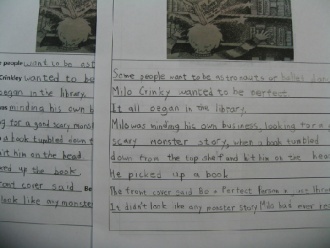 people want to be ast
Crinkly wanted to be
began in the library.
was minding his own b
g for a good scary monst
a book tumbled down t
hit him on the head.
ked up the book.
ront cover said Be
look like any monster
Some people want to be astronauts or ballet
Milo Crinky wanted to be perfect.
It all oegan in the library.
Milo was minding his own business, looking for a
scary monster story, when a book tumbled
down from the top shelf and hit him on the hea
He picked up a book
The front cover said Be a Perfect Person in Just Three
It didn't look like any monster story Milo had ever